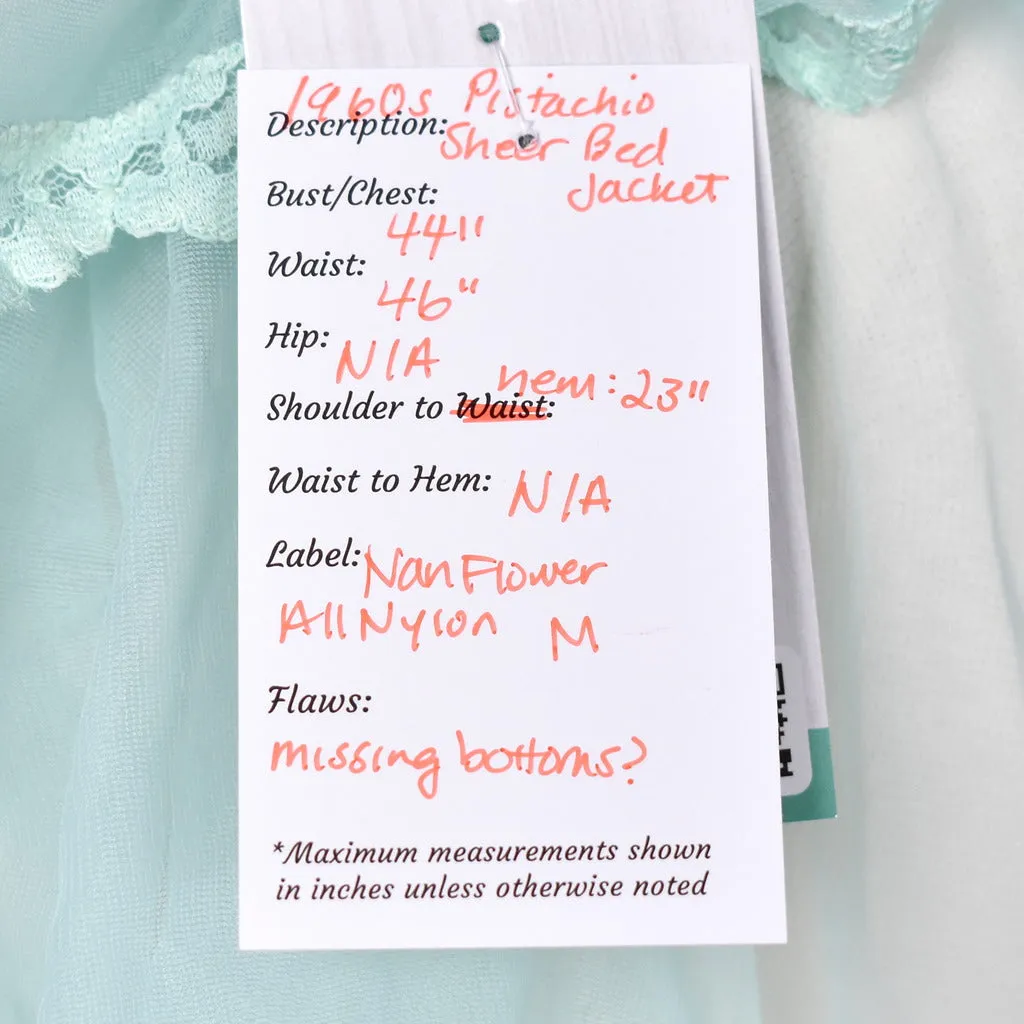 1960s Pistachio
Description: Sheer Bed
Jacket
Bust/Chest:
44"
Waist:
46"
Hip:
N/A
hem: 23"
Shoulder to Waist:
Waist to Hem: N/A
Label: Nan Flower
All Nylon M
Flaws:
missing bottoms?
*Maximum measurements shown
in inches unless otherwise noted